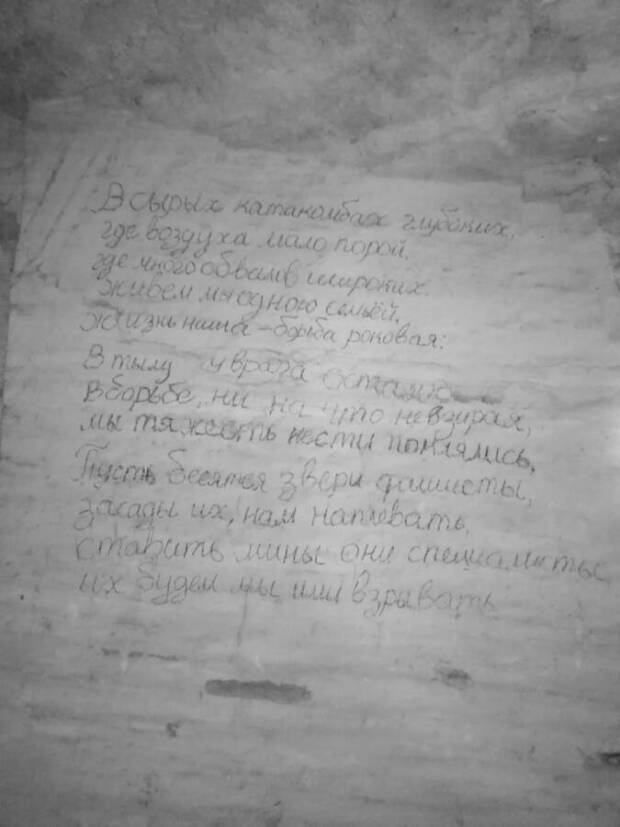 В сырых катакомбах глубоких,
где воздуха мало порой.
где много обвалов широких.
живём мы одною семьёй,
жизнь наша – борьба роковая:
В тылу у врага остались
В борьбе, ни на что невзирая,
мы тяжесть нести поклялись,
Пусть бесятся звери фашисты,
засады их, нам наплевать,
ставить мины они специалисты,
их будем мы ими взрывать